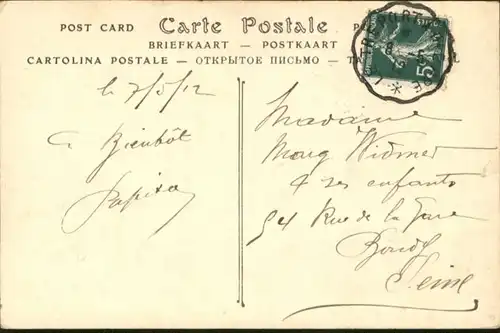 POST CARD Carte Postale P
BRIEFKAART - POSTKAART
CARTOLINA POSTALE - ОТКРЫТОЕ ПИСЬМО - T
le 7/5/12
a Bientôt
Madame
Widmer
& ses enfants
54 Rue de la Gare
Bondy
Seine
5